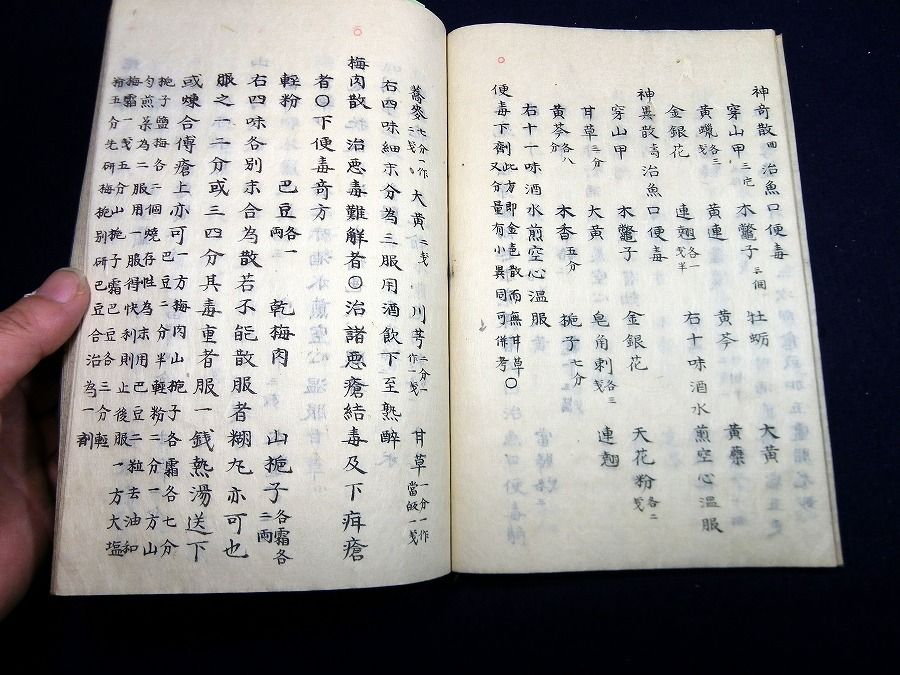 神奇散 四 治魚口便毒
穿山甲 三它 木鼈子 三個 牡蛎 大黄
黄蠟 各三 黄連 黄芩 黄蘗
金銀花 連翹 各一戔半 右十味酒水煎空心温服
神異散 治魚口便毒
穿山甲 木鼈子 金銀花 天花粉 各二戔
甘草 三分 大黄 皂角刺 各三戔 連翹
黄芩 各八分 木香 五分 梔子 七分
右十一味酒水煎空心温服
便毒下劑 此方即金邑散而無甘草〇
又分量有小異同可併考
蕎麥 七分一作二戔 大黄 二戔 川芎 二分一作一戔 甘草 一分一作當皈一戔
右四味細末分為三服用酒飲下至熟醉
梅肉散 治惡毒難解者〇治諸惡瘡結毒及下疳瘡
者〇下便毒奇方
輕粉 巴豆 各一兩 乾梅肉 山梔子 各霜各二兩
右四味各別末合為散若不能散服者糊丸亦可也
服之一二分或三四分其毒重者服一錢熱湯送下
或煉合傅瘡上亦可一方梅肉山梔子各霜各七分
巴豆二分半輕粉二分一方山
梔子鹽梅各二個燒存性為末用巴豆二粒去油和
勺煎茶為二服用一服得快利則止後服一方大塩
梅霜一戔五分山梔子霜巴豆各三分輕
粉五分先研梅梔別研巴豆合治為一劑